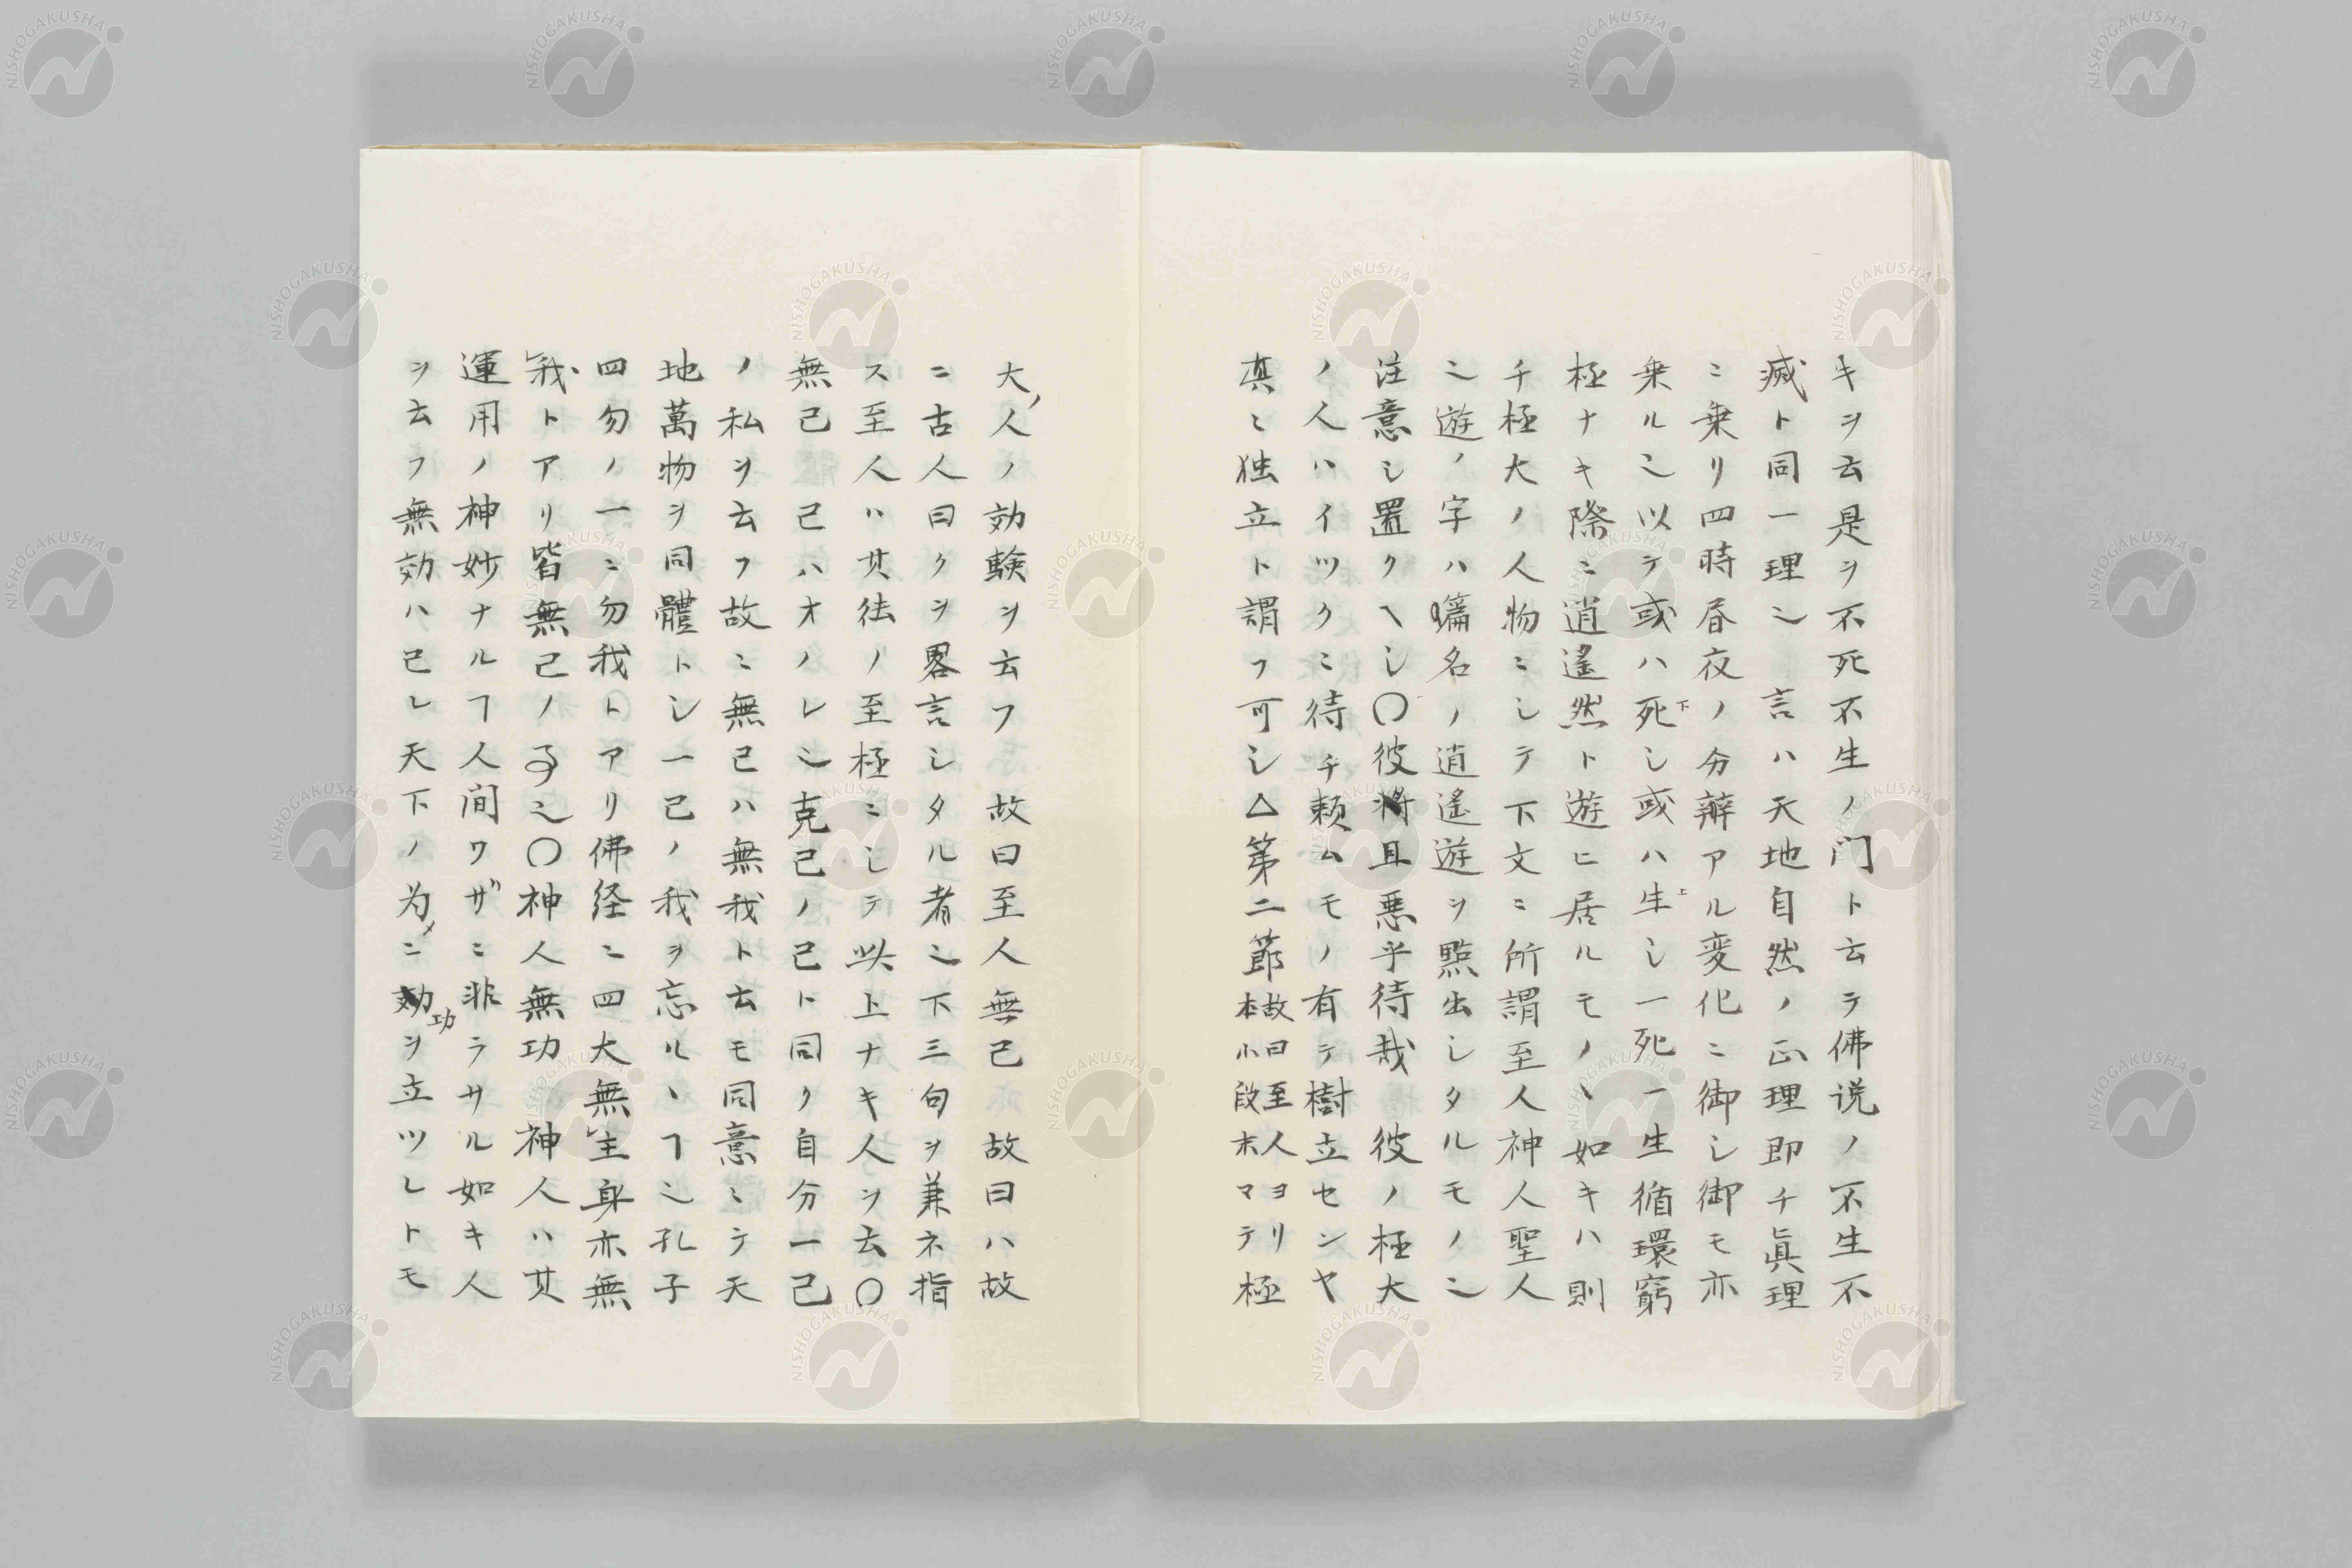 キヲ云是ヲ不死不生ノ门ト云テ佛说ノ不生不
滅ト同一理ﾆ 言ハ天地自然ノ正理即チ眞理
ニ乗リ四時昼夜ノ分辧アル変化ニ御シ御モ亦
乗ルﾆ以テ或ハ死下シ或ハ生上シ一死一生循環窮
極ナキ際ニ逍遙然ト遊ヒ居ルモノヽ如キハ則
チ極大ノ人物ニシテ下文ニ所謂至人神人聖人
ﾆ遊ノ字ハ篇名ノ逍遙遊ヲ點出シタルモノﾆ
注意シ置クヘシ〇彼将且悪乎待哉 彼ノ極大
ノ人ハイツクニ待チ頼ムモノ有テ樹立センヤ
真ニ独立ト謂フ可シ△第二節故曰至人ヨリ本小段末マテ極
大人ノ効験ヲ云フ 故曰至人無己 故曰ハ故
ニ古人曰クヲ畧言シタル者ﾆ下三句ヲ兼ネ指
ス至人ハ其徃ノ至極ニシテ以上ナキ人ヲ云〇
無己 己ハオノレﾆ克己ノ己ト同ク自分一己
ノ私ヲ云フ故ニ無己ハ無我ト云モ同意ニテ天
地萬物ヲ同體トシ一己ノ我ヲ忘ルヽヿﾆ孔子
四勿ノ一ニ勿我トアリ佛経ニ四大無主身亦無
我トアリ皆無己ノ叓ﾆ〇神人無功 神人ハ其
運用ノ神妙ナルヿ人間ワザニ非ラサル如キ人
ヲ云フ無効ハ己レ天下ノ为メニ功ヲ立ツレトモ
NISHOGAKUSHA